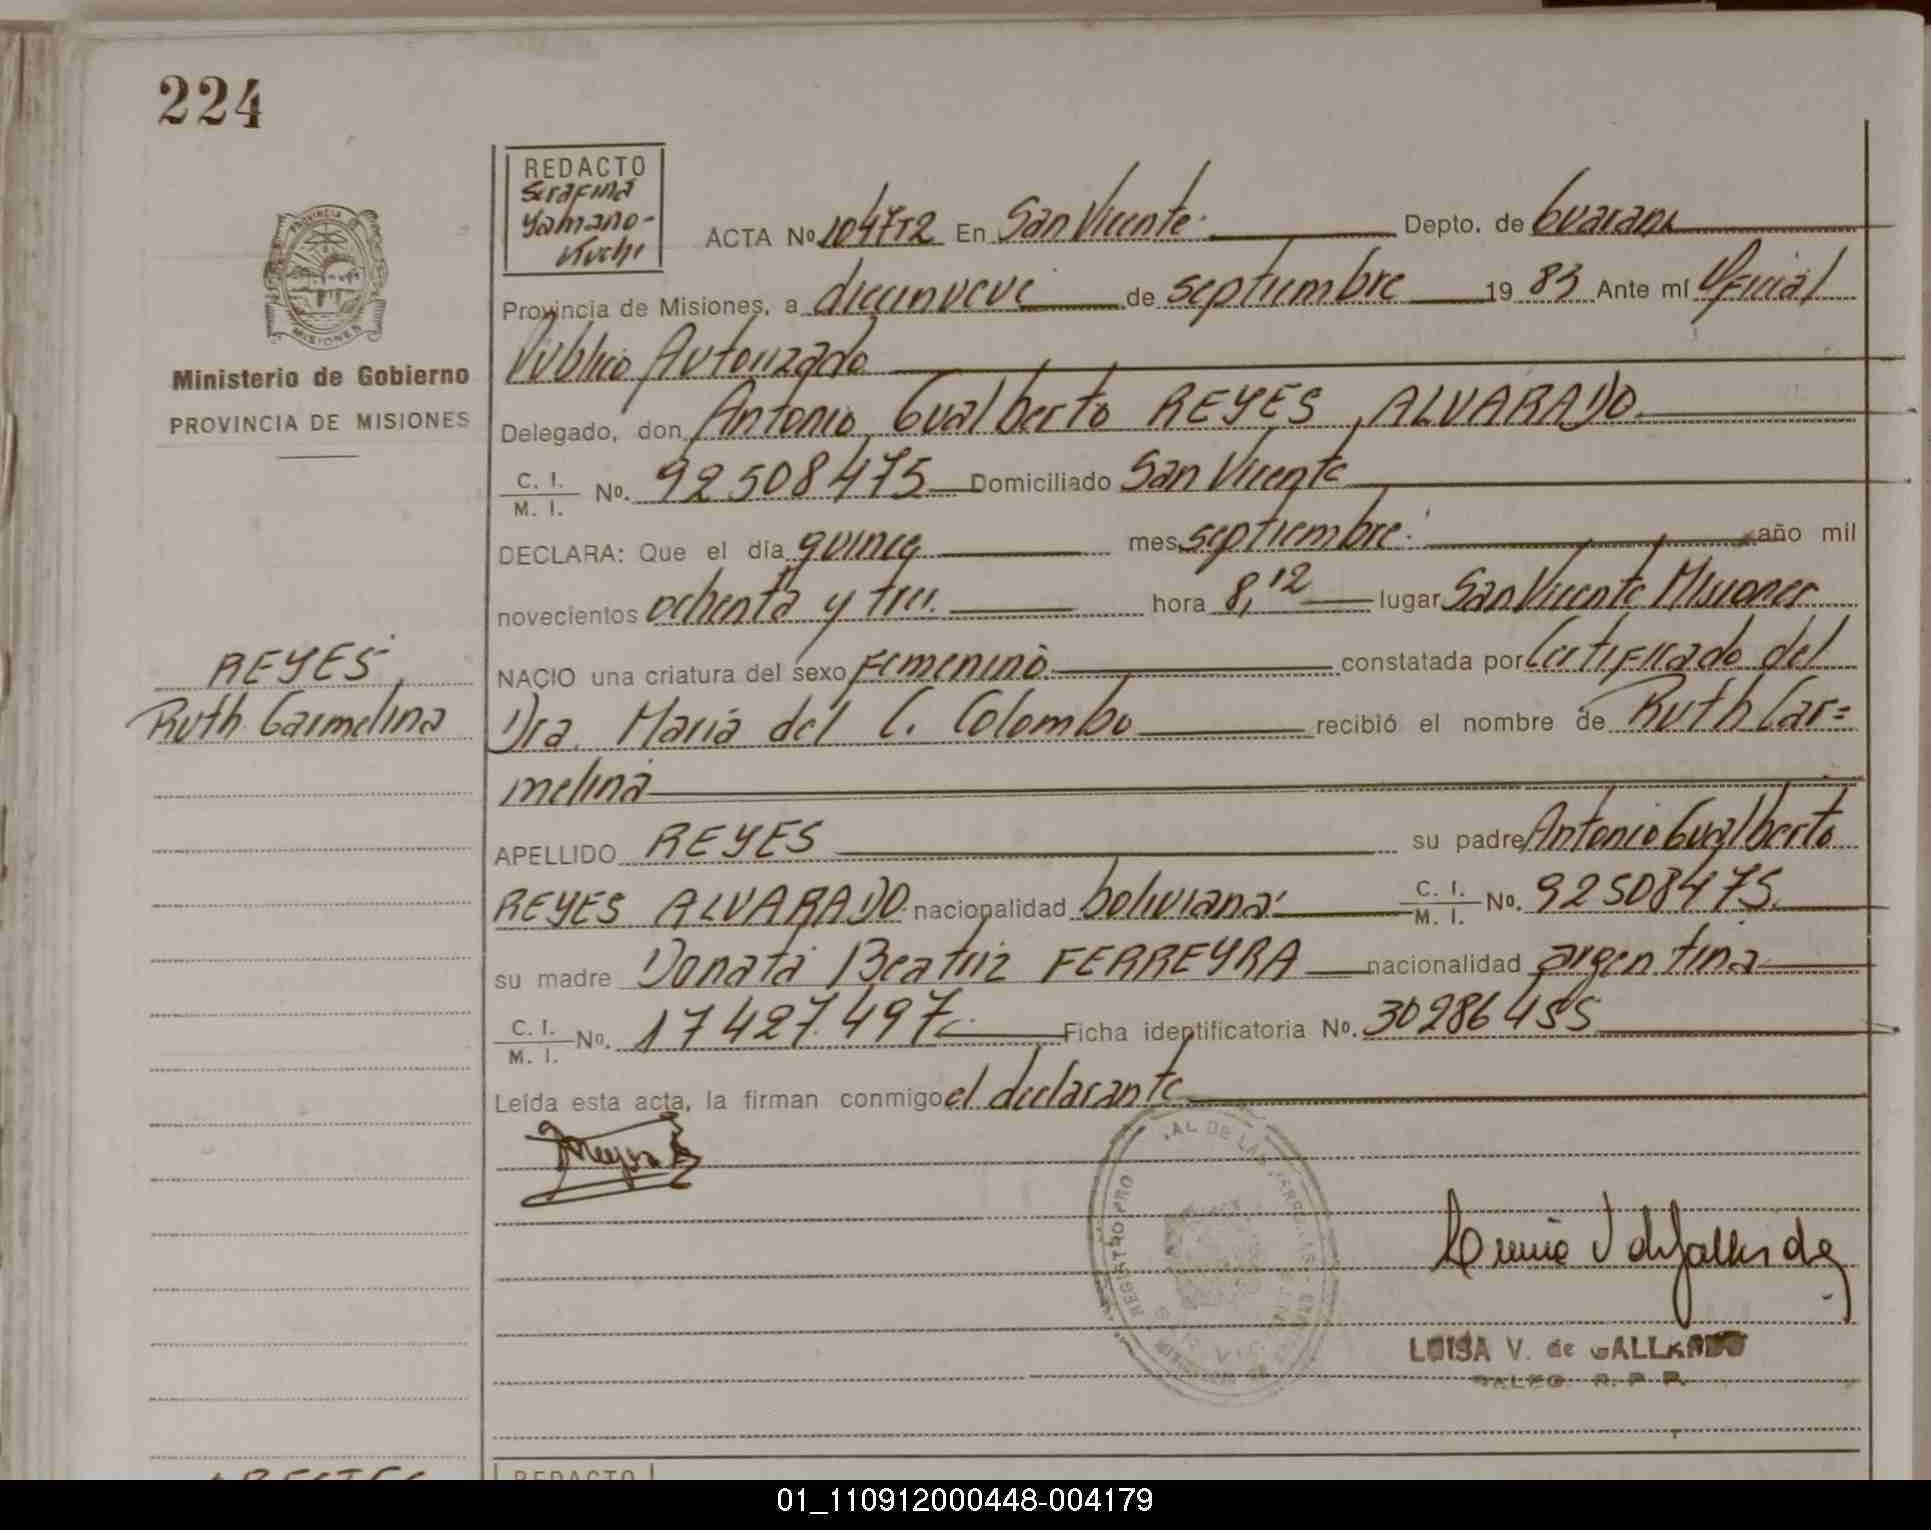 224
REDACTO
Serafina
Yamano-
Kuchi
PROVINCIA DE
MISIONES
Ministerio de Gobierno
PROVINCIA DE MISIONES
ACTA Nº 1047T2 En San Vicente. Depto. de Guarani
Provincia de Misiones, a diecinueve de septiembre 19 83 Ante mí Oficial
Público Autorizado
Delegado, don Antonio Gualberto REYES ALVARADO
C. I.
M. I. Nº. 92508475 Domiciliado San Vicente
DECLARA: Que el día quince mes septiembre. año mil
novecientos ochenta y tres. hora 8,12 lugar San Vicente Misiones
NACIO una criatura del sexo Femenino. constatada por Certificado del
Dra. María del C. Colombo recibió el nombre de Ruth Car=
melina
REYES,
Ruth Carmelina
APELLIDO REYES su padre Antonio Gualberto
REYES ALVARADO nacionalidad boliviana. C. I.
M. I. Nº. 92508475.
su madre Donata Beatriz FERREYRA nacionalidad argentina
C. I.
M. I. Nº. 17427.497. Ficha identificatoria Nº. 30286455
Leída esta acta, la firman conmigo el declarante
REGISTRO PRO AL DE LAS
LUISA V. de GALLARDO
R. P. P.
REDACTO
01_110912000448-004179